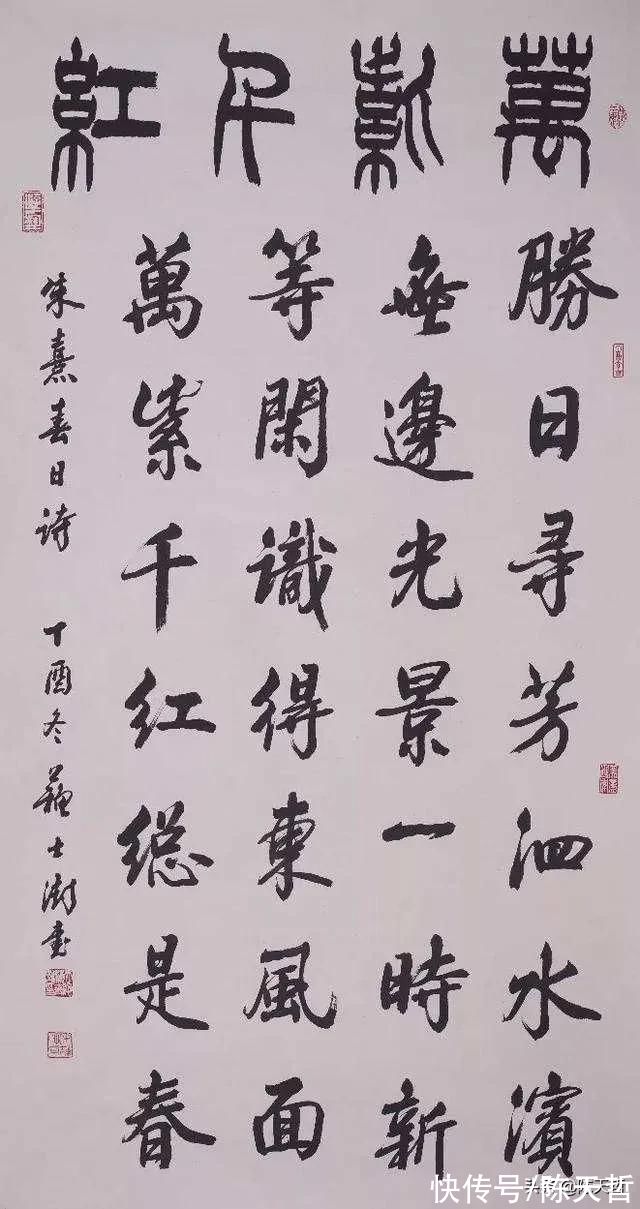 萬紫千紅
勝日尋芳泗水濱
無邊光景一時新
等閑識得東風面
萬紫千红緫是春
朱熹春日詩 丁酉冬 蘇士澍書
快传号/陈天哲